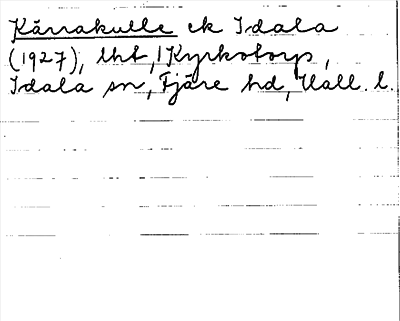 Kärrakulle ek Idala
(1927), lht, Kyrkotorp,
Idala sn, Fjäre hd, Hall. l.